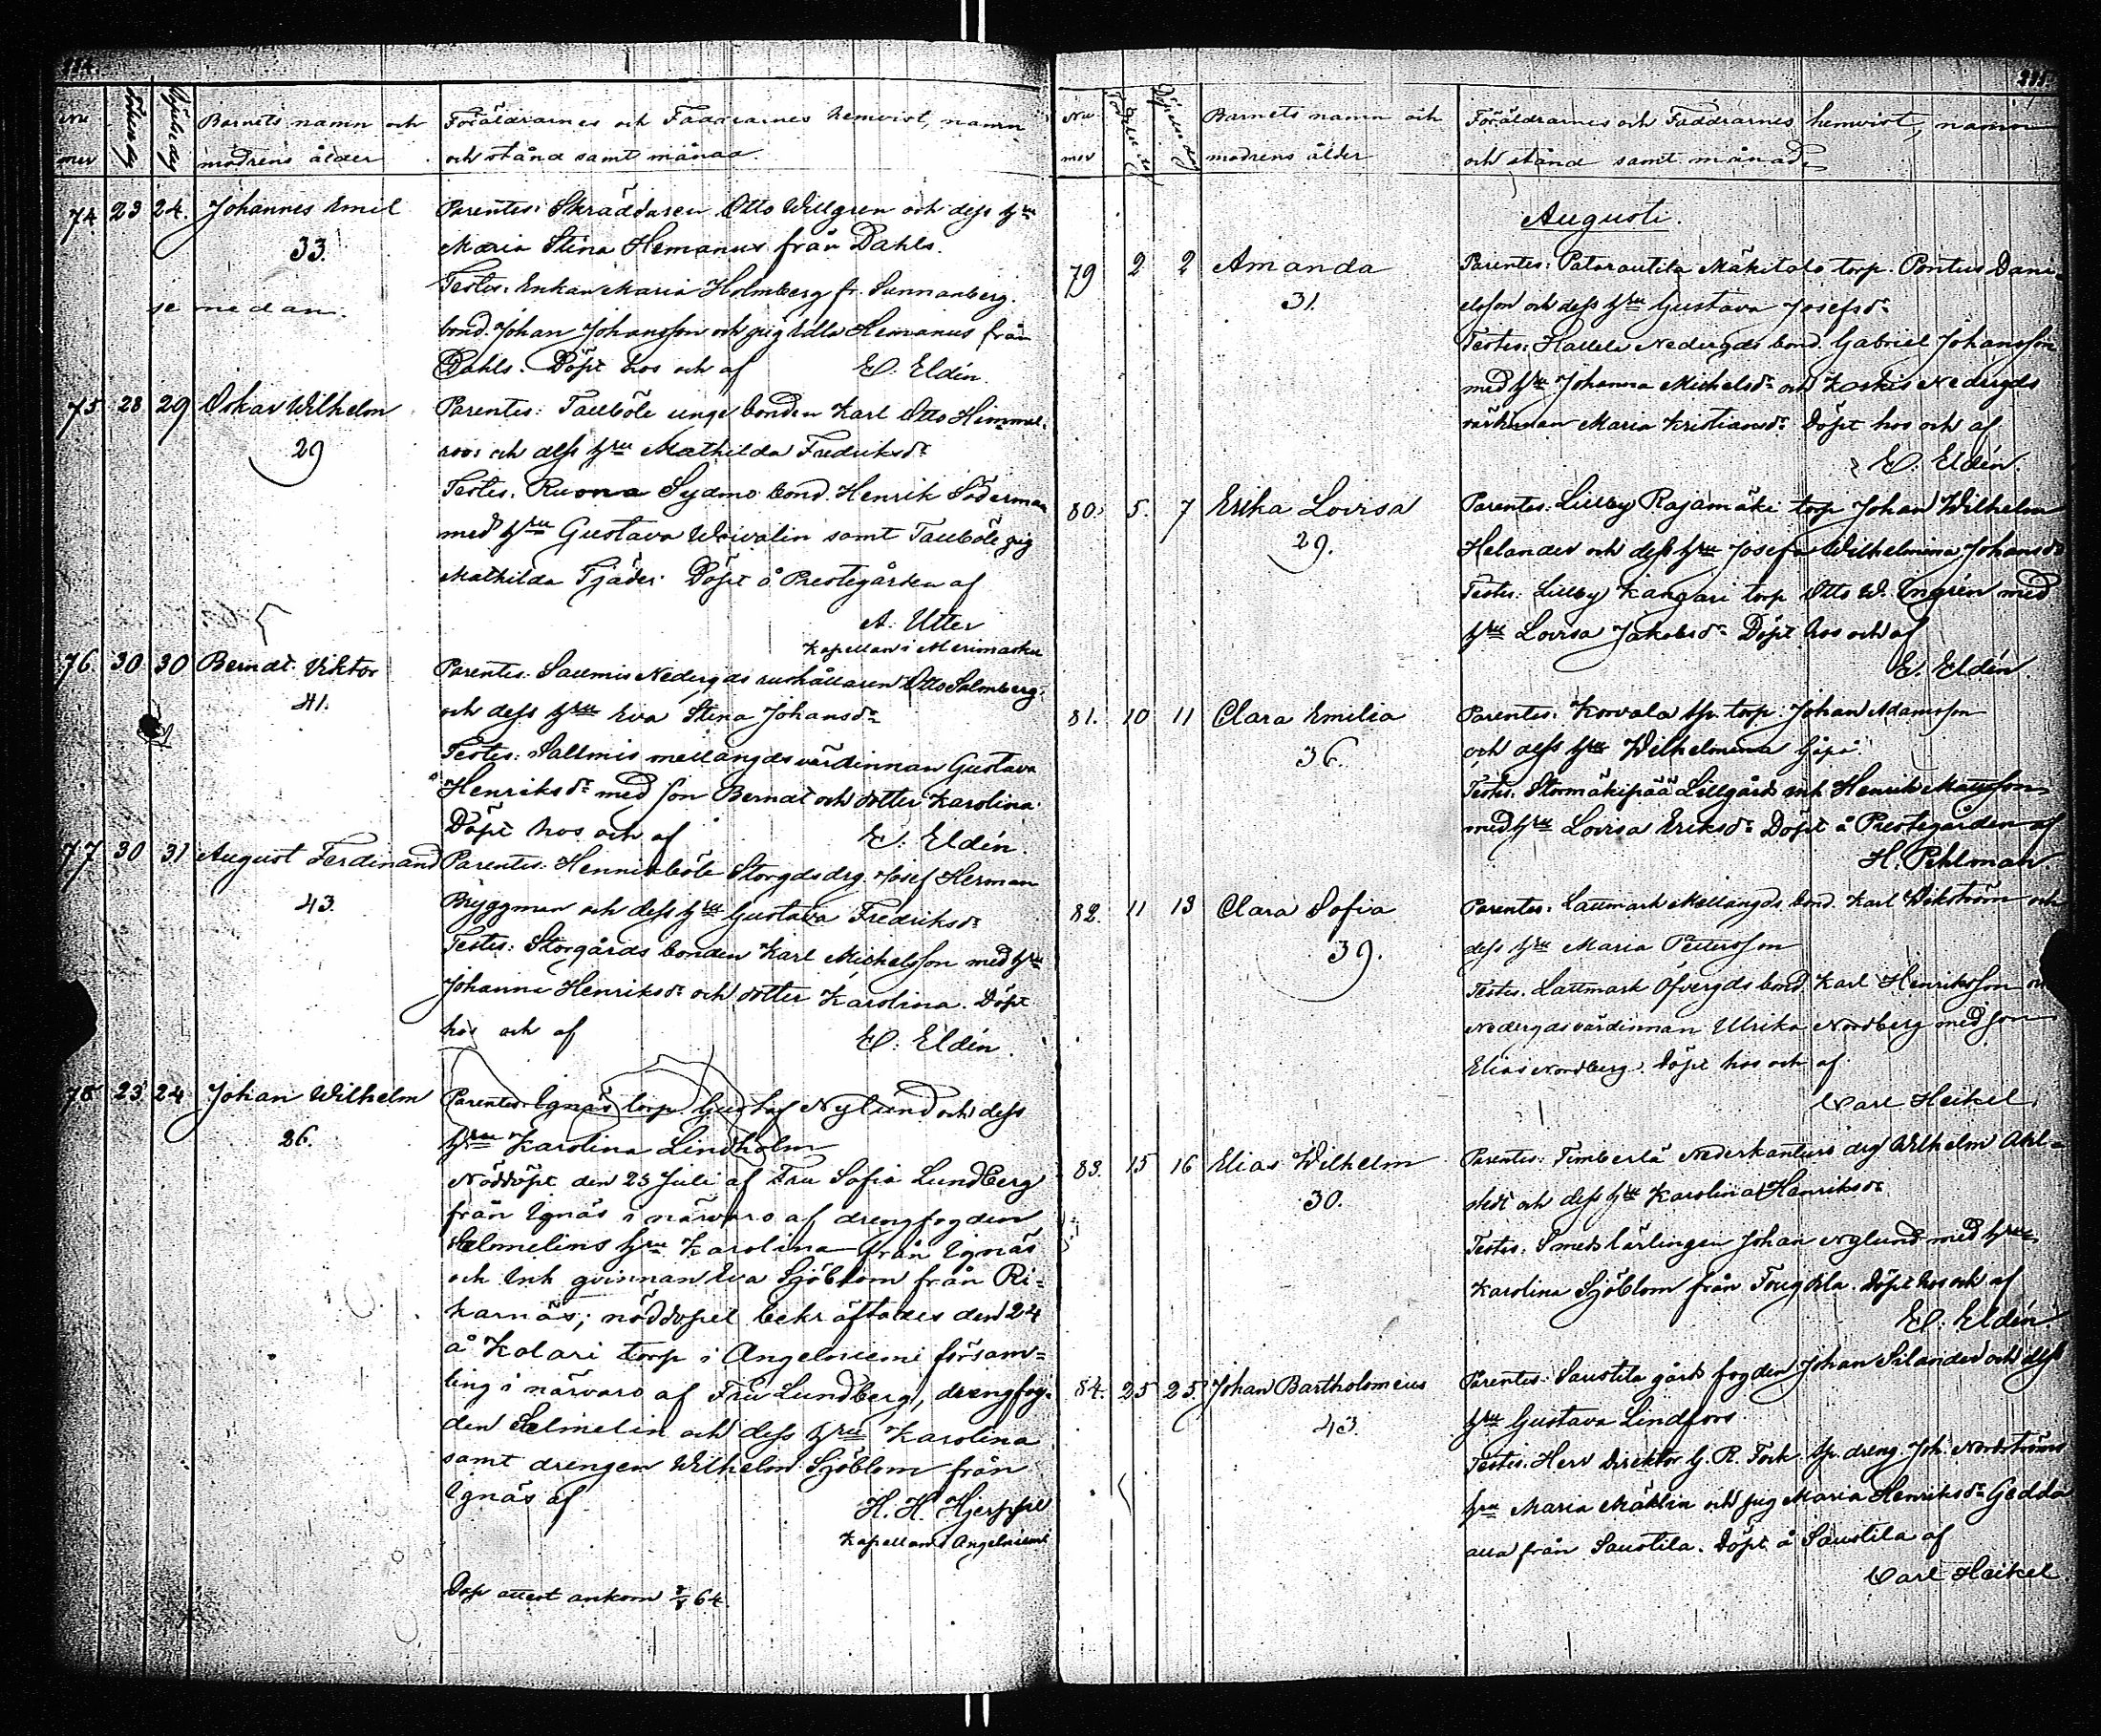 184.
Nu
mer
Födelsedag
Döpelsedag
Barnets namn och
modrens ålder
Föräldrarnes och Faddrarnes hemvist, namn
och stånd samt månad.
74 23 24. Johannes Emil
33.
se nedan.
Parentes: Skräddaren Otto Willgren och dess hru
Maria Stina Hemanus från Dahls.
Testes: Enkan Maria Holmberg fr. Sunnanberg.
bond. Johan Johansson och pig Edla Hemanus från
Dahls. Döpt hos och af E. Eldén.
75 28 29 Oskar Wilhelm
29
Parentes: Tauböle unge bonden Karl Otto Himmel-
roos och dess hru Mathilda Fredriksdr
Testes. Ruona Sydmo bond. Henrik Söderman
med hru Gustava Weivalin samt Tauböle pig
Mathilda Tjäder. Döpt å Prestegården af
A. Utter
Kapellan i Merimasku
76. 30 30 Berndt Viktor
41.
Parentes: Salmis Nedergds rushållaren Otto Salmberg
och dess hru Eva Stina Johansdr
Testes: Sallmis mellangds värdinnan Gustava
Henriksdr med son Berndt och dotter Karolina.
Döpt hos och af E. Eldén.
77 30 31 August Ferdinand
43.
Parentes: Hennikböle Storgds drg. Josef Herman
Bryggman och dess hru Gustava Fredriksdr
Testes: Storgårds bonden Karl Michelsson med hru
Johanna Henriksdr och dotter Karolina. Döpt
hos och af E. Eldén.
78 23 24 Johan Wilhelm
26.
Parentes: Egnäs torp. Gustaf Nylund och dess
hru Karolina Lindholm
Nöddöpt den 23 Juli af Fru Sofia Lundberg
från Egnäs i närvaro af drengfogden
Selmelins hru Karolina från Egnäs
och Inh. qvinnan Eva Sjöblom från Ri-
karnäs; nöddopet bekräftades den 24
å Kolari torp i Angelniemi försam-
ling i närvaro af Fru Lundberg, drengfog-
den Selmelin och dess hru Karolina
samt drengen Wilhelm Sjöblom från
Egnäs af H. H. Hjerppe
Kapellan i Angelniemi
Dop attest ankom 64.
185.
Nu
mer
Födelsedag
Döpelsedag
Barnets namn och
modrens ålder
Föräldrarnes och Faddrarnes hemvist, namn
och stånd samt månad.
Augusti.
79 2 2 Amanda
31.
Parentes: Patarautila Mäkitalo torp. Pontus Dani-
elsson och dess hru Gustava Josefsdr
Testes: Nedergds bond. Gabriel Johansson
med hru Johanna Michelsdr och Koskis Nedergds
värdinnan Maria Kristiansdr Döpt hos och af
E. Eldén.
80. 5. 7 Erika Lovisa
29.
Parentes: Lilleby Rajamäki torp Johan Wilhelm
Helander och dess hru Josefa Wilhelmina Johansdr
Testes: Lilleby Kangari torp Otto W. Engrén med
hru Lovisa Jakobsdr Döpt hos och af
E. Eldén.
81. 10 11 Clara Emilia
36.
Parentes: Korvala torp Johan Adamsson
och dess hru Wilhelmina
Testes: Stormäkipää Lillgårds inh. Henrik Mattsson
med hru Lovisa Eriksdr Döpt å Prestegården af
H. Pihlman
82. 11 13 Clara Sofia
39.
Parentes: Lautmark Mellangds bond. Karl Wikström och
dess hru Maria Pettersson
Testes. Lautmark Öfvergds bond Karl Henriksson
Nedergds värdinnan Ulrika Nordberg med son
Elias Nordberg. Döpt hos och af
Carl Heikel.
83. 15 16 Elias Wilhelm
30.
Parentes: Timberlä Nederkanturs drg Wilhelm Ahl-
stedt och dess hru Karolina Henriksdr
Testes: Smedslärlingen Johan Nylund med hru
Karolina Sjöblom från Tougkla. Döpt hos och af
E. Eldén
84. 25 25. Johan Bartholomeus
43.
Parentes: Saustila gårds fogden Johan Silander och dess
hru Gustava Lindfors.
Testes: Herr Direktor G. R. Tork dreng. Joh. Nordströms
hru Maria Mäklin och pig Maria Henriksdr Gedda
alla från Saustila. Döpt å Saustila af
Carl Heikel